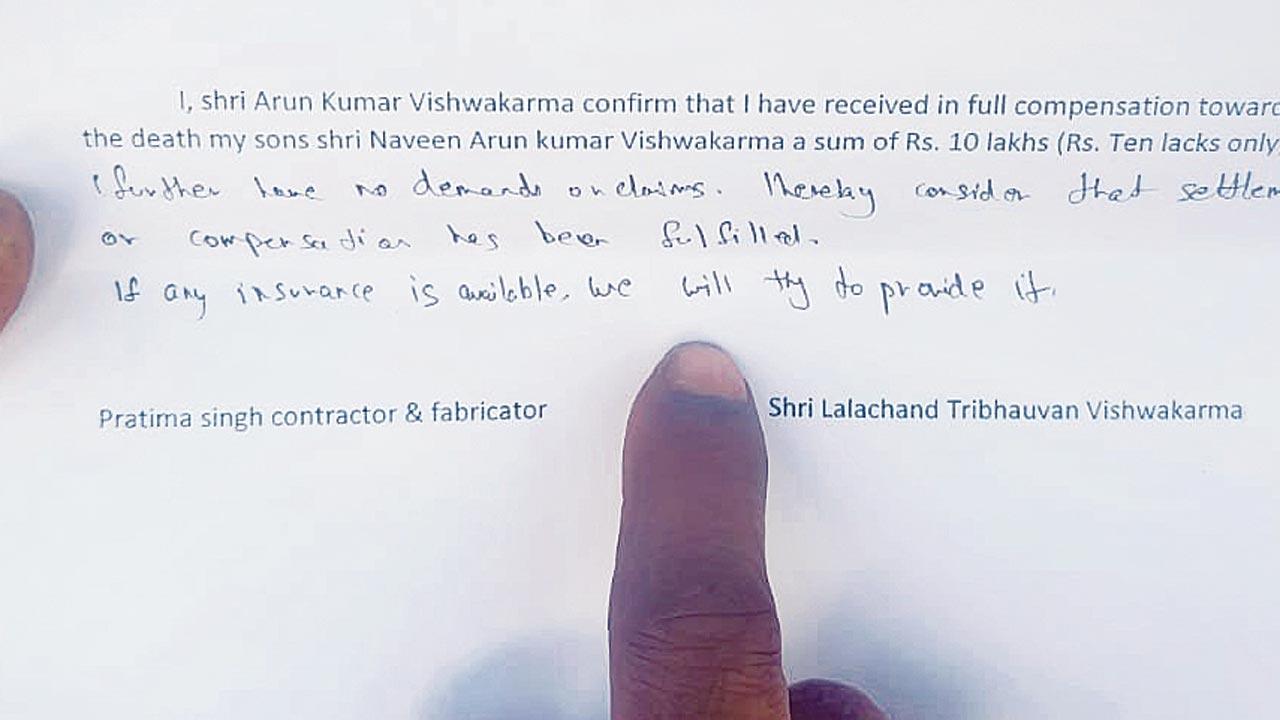 I, shri Arun Kumar Vishwakarma confirm that I have received in full compensation toward
the death my sons shri Naveen Arun kumar Vishwakarma a sum of Rs. 10 lakhs (Rs. Ten lacks only
I further have no demands or claims. I hereby consider that settlem
or compensation has been fulfilled.
If any insurance is available, we will try to provide it.
Pratima singh contractor & fabricator
Shri Lalachand Tribhauvan Vishwakarma